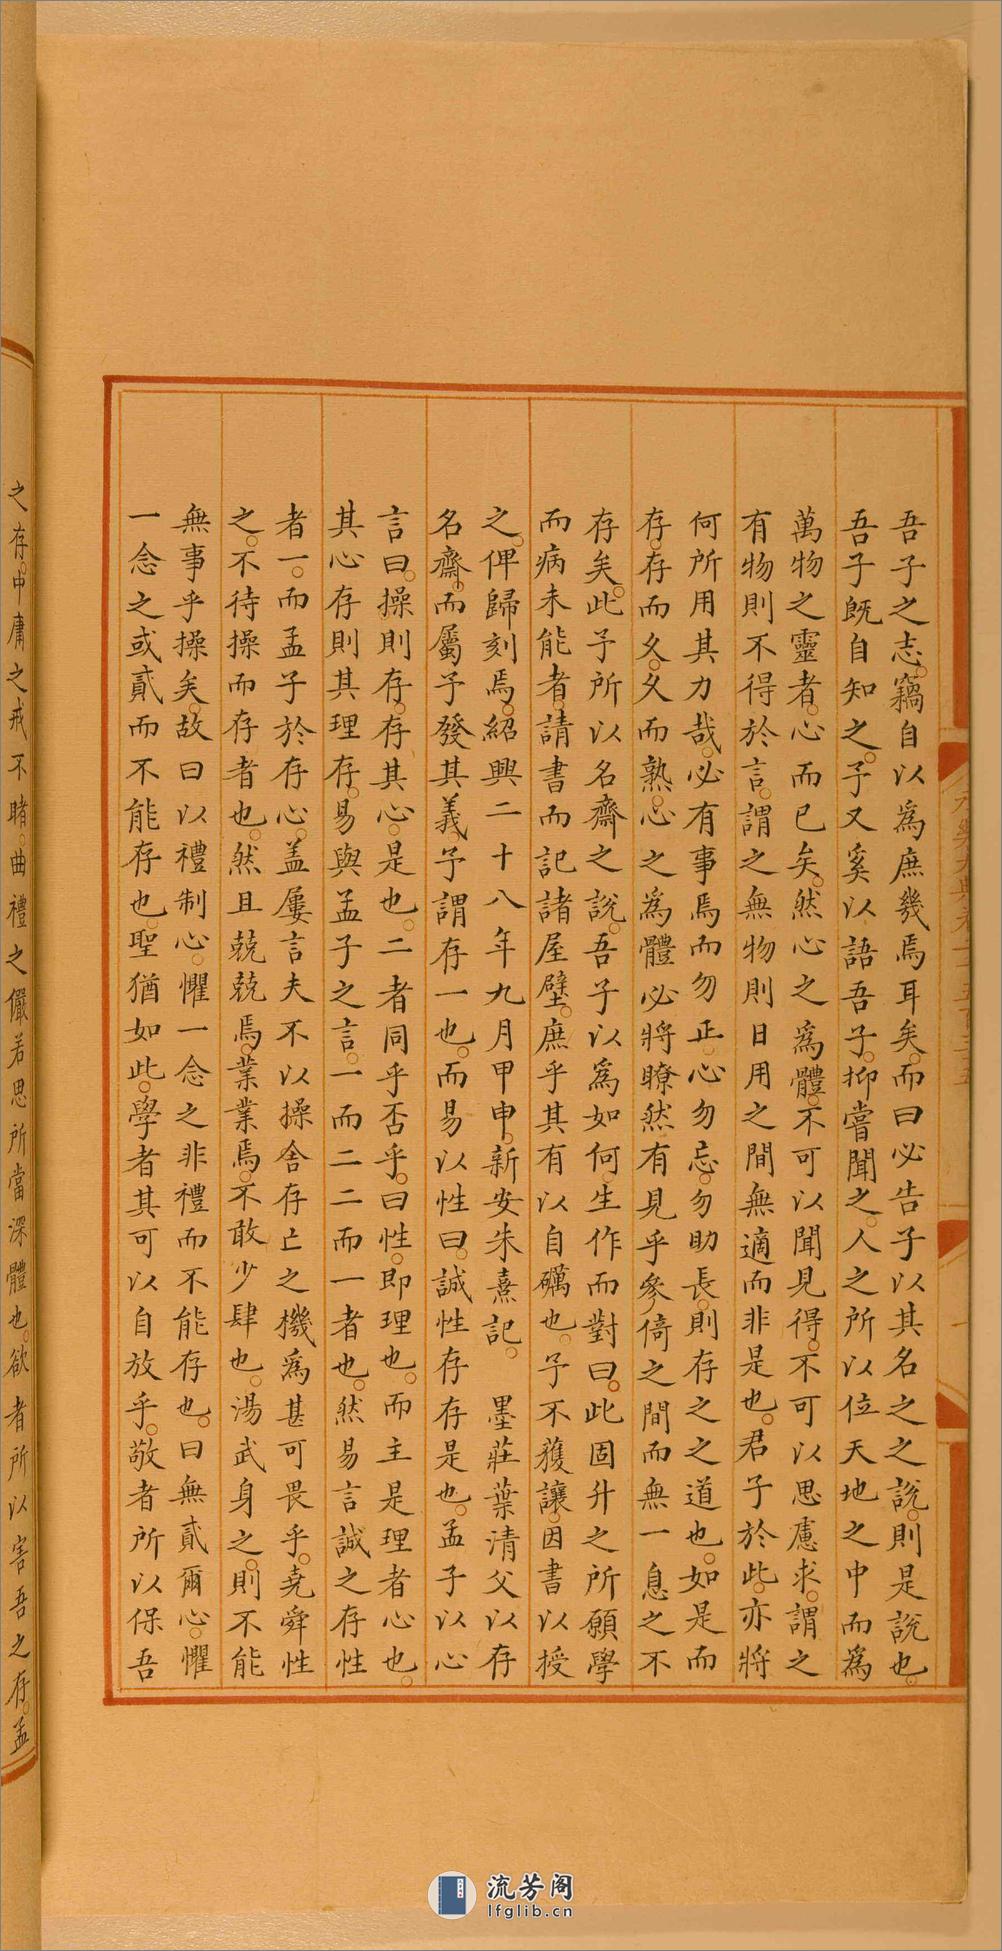 吾子之志。竊自以爲庶幾焉耳矣。而曰必告子以其名之之說。則是說也。
吾子旣自知之。予又奚以語吾子。抑嘗聞之。人之所以位天地之中而爲
萬物之靈者。心而已矣。然心之爲體。不可以聞見得。不可以思慮求。謂之
有物則不得於言。謂之無物則日用之間無適而非是也。君子於此。亦將
何所用其力哉。必有事焉而勿正。心勿忘。勿助長。則存之之道也。如是而
存。存而久。久而熟。心之爲體必將瞭然有見乎參倚之間而無一息之不
存矣。此予所以名齋之說。吾子以爲如何。生作而對曰。此固升之所願學
而病未能者。請書而記諸屋壁。庶乎其有以自礪也。予不獲讓。因書以授
之。俾歸刻焉。紹興二十八年九月甲申。新安朱熹記。　墨莊葉清父以存
名齋。而屬予發其義。予謂存一也。而易以性曰。誠性存存是也。孟子以心
言曰。操則存。存其心。是也。二者同乎否乎。曰性。即理也。而主是理者心也。
其心存則其理存。易與孟子之言。一而二二而一者也。然易言誠之存性
者一。而孟子於存心。盖屢言夫不以操舍存亡之機爲甚可畏乎。堯舜性
之。不待操而存者也。然且兢兢焉。業業焉。不敢少肆也。湯武身之。則不能
無事乎操矣。故曰以禮制心。懼一念之非禮而不能存也。曰無貳爾心。懼
一念之或貳而不能存也。聖猶如此。學者其可以自放乎。敬者所以保吾
之存。中庸之戒不睹。曲禮之儼若思所當深體也。欲者所以害吾之存。孟
流芳阁
lfglib.cn